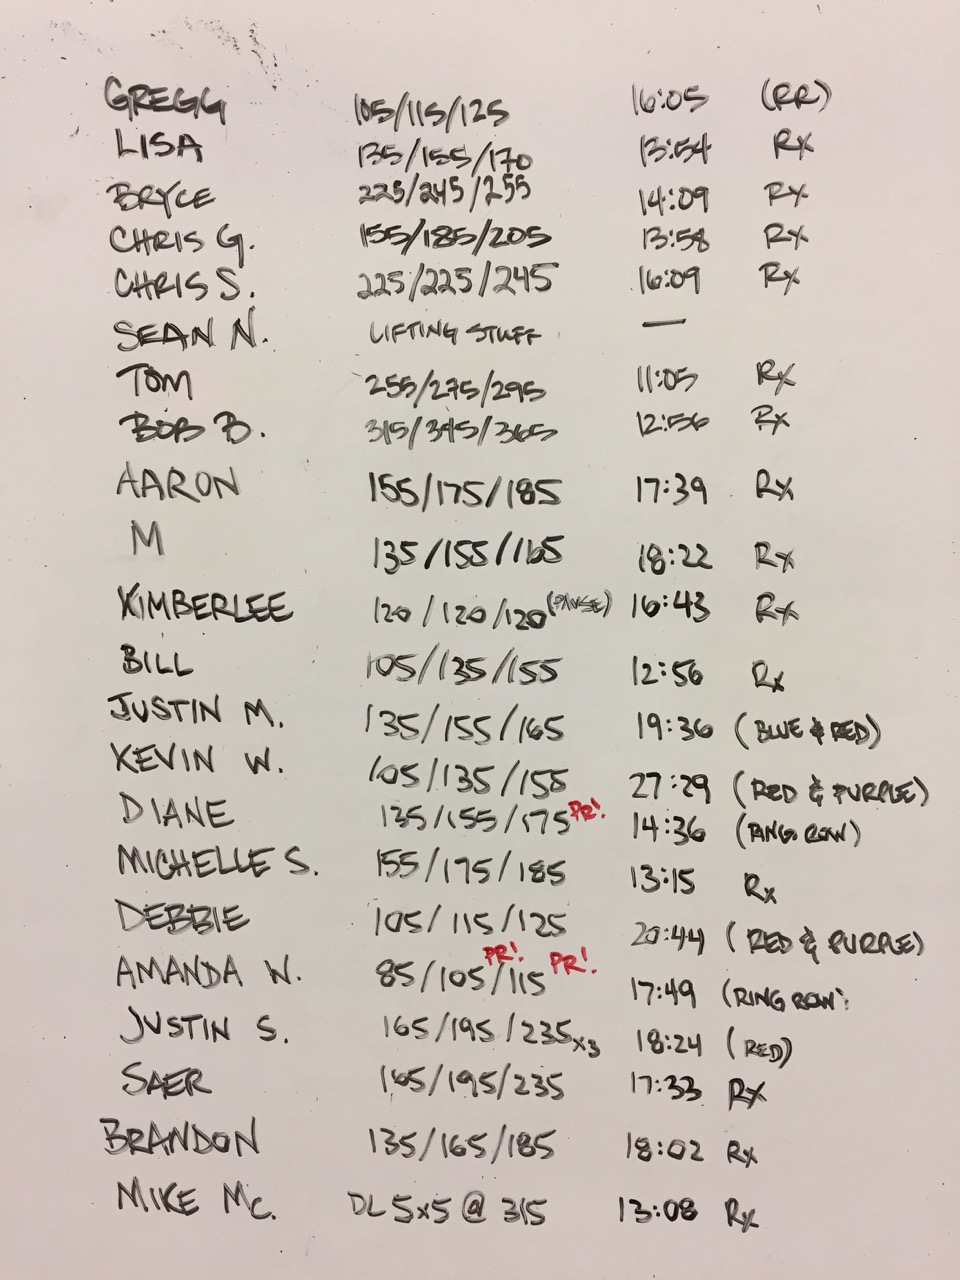 GREGG 105/115/125 16:05 (RR)
LISA 135/155/170 13:54 Rx
BRYCE 225/245/255 14:09 Rx
CHRIS G. 155/185/205 13:58 Rx
CHRIS S. 225/225/245 16:09 Rx
SEAN N. LIFTING STUFF —
TOM 255/275/295 11:05 Rx
BOB B. 315/345/365 12:56 Rx
AARON 155/175/185 17:39 Rx
M 135/155/165 18:22 Rx
KIMBERLEE 120/120/120 (PAUSE) 16:43 Rx
BILL 105/135/155 12:56 Rx
JUSTIN M. 135/155/165 19:36 (BLUE & RED)
KEVIN W. 105/135/155 27:29 (RED & PURPLE)
DIANE 135/155/175 PR! 14:36 (RING ROW)
MICHELLE S. 155/175/185 13:15 Rx
DEBBIE 105/115/125 20:44 (RED & PURPLE)
PR! PR!
AMANDA W. 85/105/115 17:49 (RING ROW)
JUSTIN S. 165/195/235 x3 18:24 (RED)
SAER 165/195/235 17:33 Rx
BRANDON 135/165/185 18:02 Rx
MIKE MC. DL 5x5 @ 315 13:08 Rx